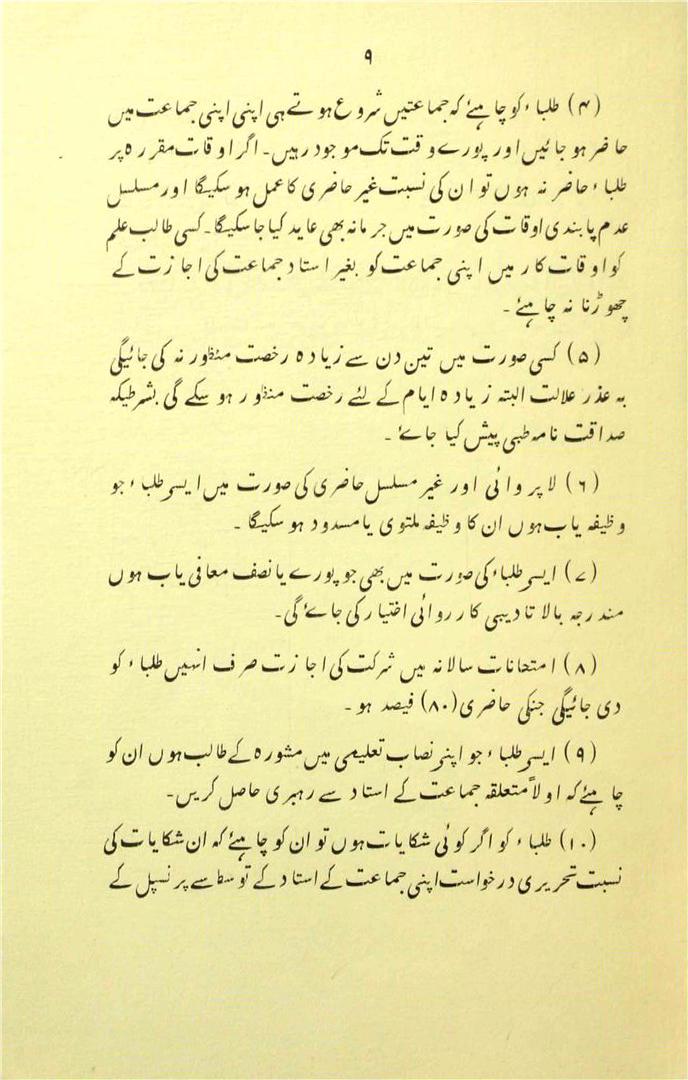 ۹
(۴) طلباء کو چاہئے کہ جماعتیں شروع ہوتے ہی اپنی اپنی جماعت میں
حاضر ہو جائیں اور پورے وقت تک موجود رہیں۔ اگر اوقات مقررہ پر
طلباء حاضر نہ ہوں تو ان کی نسبت غیر حاضری کا عمل ہو سکیگا اور مسلسل
عدم پابندی اوقات کی صورت میں جرمانہ بھی عاید کیا جا سکیگا۔ کسی طالب علم
کو اوقات کار میں اپنی جماعت کو بغیر استاد جماعت کی اجازت کے
چھوڑنا نہ چاہئے۔
(۵) کسی صورت میں تین دن سے زیادہ رخصت منظور نہ کی جائیگی
بہ عذر علالت البتہ زیادہ ایام کے لئے رخصت منظور ہو سکے گی بشرطیکہ
صداقت نامہ طبی پیش کیا جائے۔
(۶) لاپروائی اور غیر مسلسل حاضری کی صورت میں ایسے طلباء جو
وظیفہ یاب ہوں ان کا وظیفہ ملتوی یا مسدود ہو سکیگا۔
(۷) ایسے طلباء کی صورت میں بھی جو پورے یا نصف معافی یاب ہوں
مندرجہ بالا تادیبی کارروائی اختیار کی جائے گی۔
(۸) امتحانات سالانہ میں شرکت کی اجازت صرف انہیں طلباء کو
دی جائیگی جنکی حاضری (۸۰) فیصد ہو۔
(۹) ایسے طلباء جو اپنے نصاب تعلیمی میں مشورہ کے طالب ہوں ان کو
چاہئے کہ اولاً متعلقہ جماعت کے استاد سے رہبری حاصل کریں۔
(۱۰) طلباء کو اگر کوئی شکایات ہوں تو ان کو چاہئے کہ ان شکایات کی
نسبت تحریری درخواست اپنی جماعت کے استاد کے توسط سے پرنسپل کے